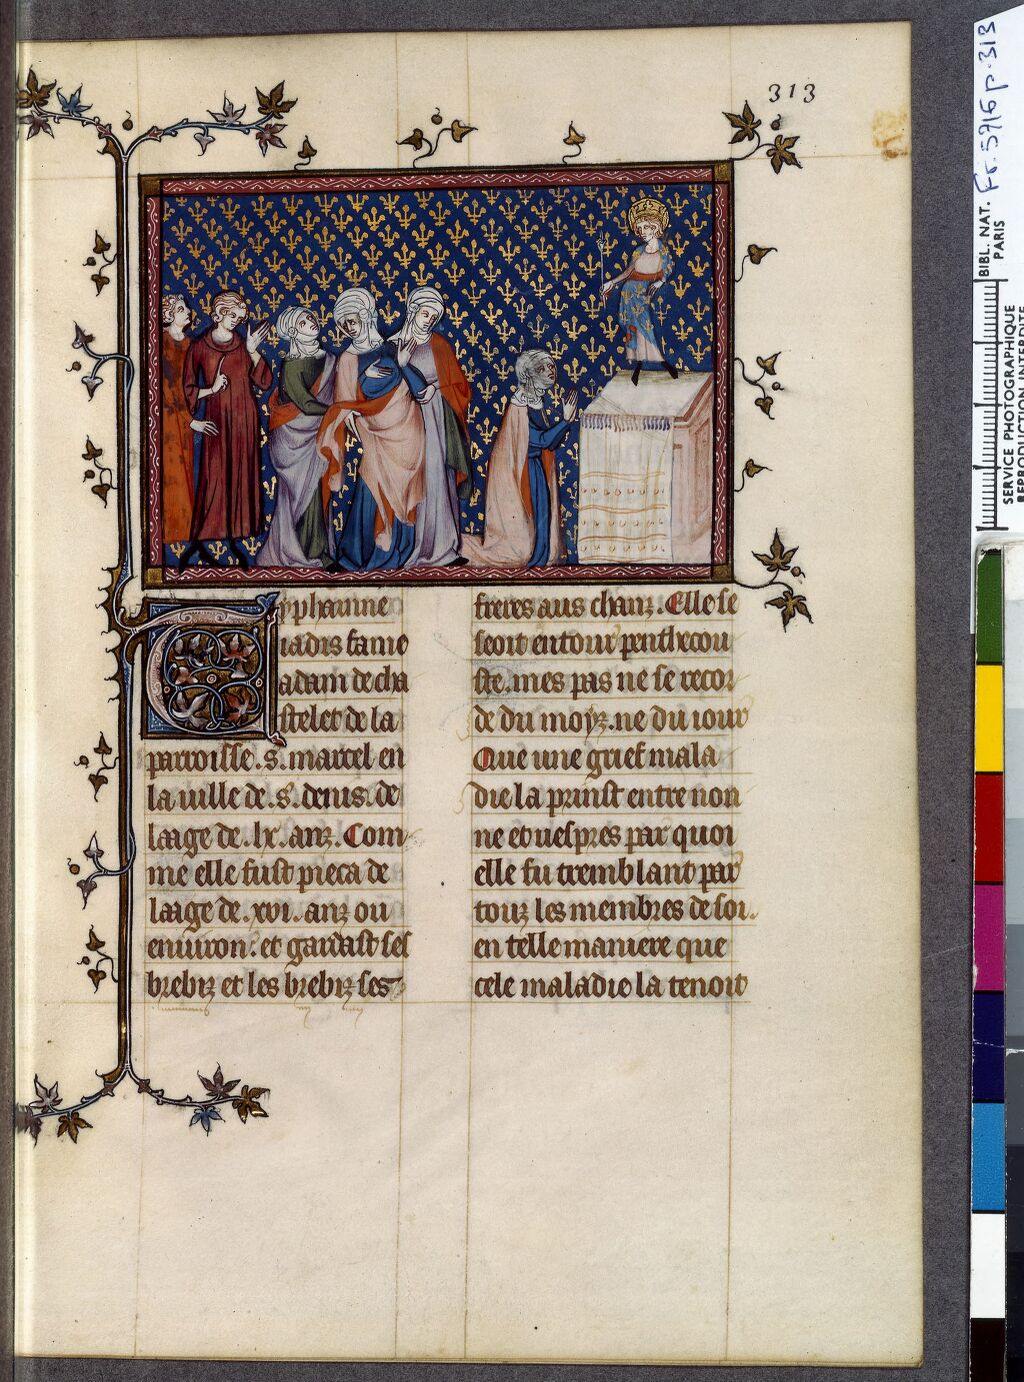 313
yphainne
iadis fame
adam de cha
stelet de la
parroisse .s. marcel en
la uille de .s. denis. de
laage de .lx. anz. Com
me elle fust pieca de
laage de .xvi. anz ou
enuiron. et gardast ses
brebiz et les brebiz ses
freres aus chanz. Elle se
seoit entour penthecou
ste. mes pas ne se recor
de du moys. ne du iour
Que une grief mala
die la prinst entre non
ne et uespres par quoi
elle fu tremblant par
touz les membres de soi.
en telle maniere que
cele maladie la tenoit
BIBL. NAT. Fr. 5716 p. 313
PARIS
SERVICE PHOTOGRAPHIQUE
REPRODUCTION INTERDITE